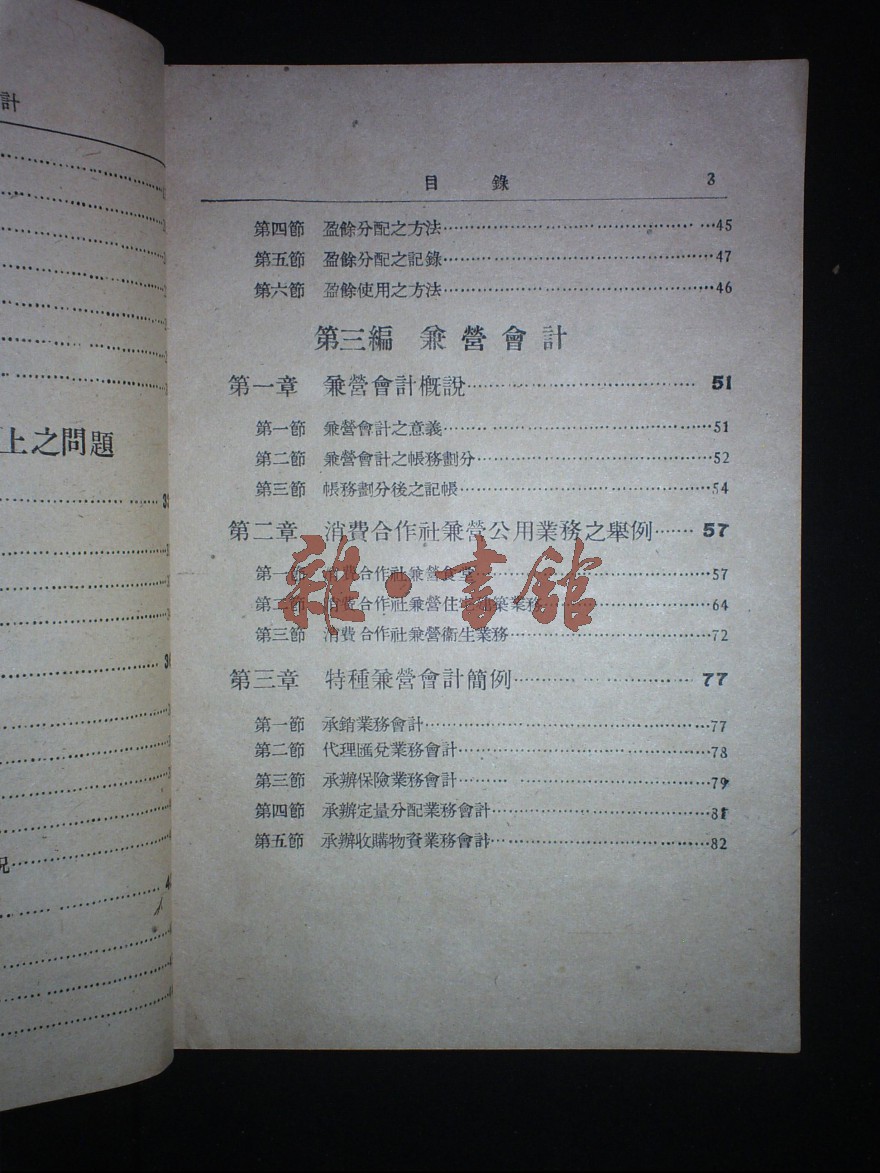 計
上之問題
況
目 錄 3
第四節 盈餘分配之方法 45
第五節 盈餘分配之記錄 47
第六節 盈餘使用之方法 46
第三編 兼營會計
第一章 兼營會計概說 51
第一節 兼營會計之意義 51
第二節 兼營會計之帳務劃分 52
第三節 帳務劃分後之記帳 54
第二章 消費合作社兼營公用業務之舉例 57
第一節 消費合作社兼營食堂 57
第二節 消費合作社兼營住宅建築業務 64
第三節 消費合作社兼營衞生業務 72
第三章 特種兼營會計簡例 77
第一節 承銷業務會計 77
第二節 代理匯兌業務會計 78
第三節 承辦保險業務會計 79
第四節 承辦定量分配業務會計 81
第五節 承辦收購物資業務會計 82
雜·書館